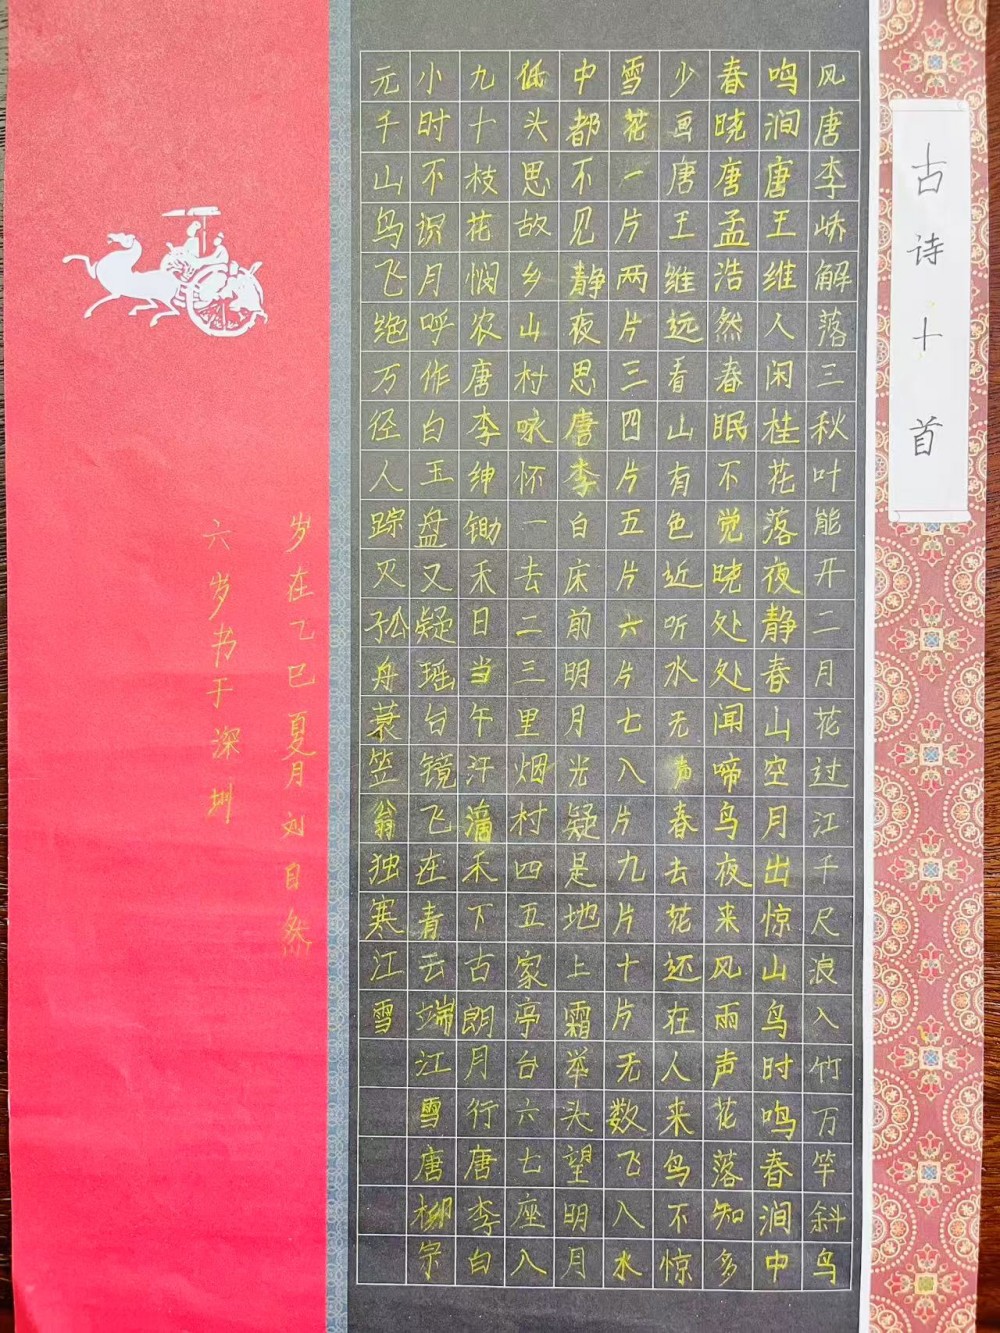 古诗十首
风唐李峤解落三秋叶能开二月花过江千尺浪入竹万竿斜鸟
鸣涧唐王维人闲桂花落夜静春山空月出惊山鸟时鸣春涧中
春晓唐孟浩然春眠不觉晓处处闻啼鸟夜来风雨声花落知多
少画唐王维远看山有色近听水无声春去花还在人来鸟不惊
雪花一片两片三四片五片六片七八片九片十片无数飞入水
中都不见静夜思唐李白床前明月光疑是地上霜举头望明月
低头思故乡山村咏怀一去二三里烟村四五家亭台六七座八
九十枝花悯农唐李绅锄禾日当午汗滴禾下古朗月行唐李白
小时不识月呼作白玉盘又疑瑶台镜飞在青云端江雪唐柳宗
元千山鸟飞绝万径人踪灭孤舟蓑笠翁独寒江雪
岁在乙巳夏月刘自然
六岁书于深圳